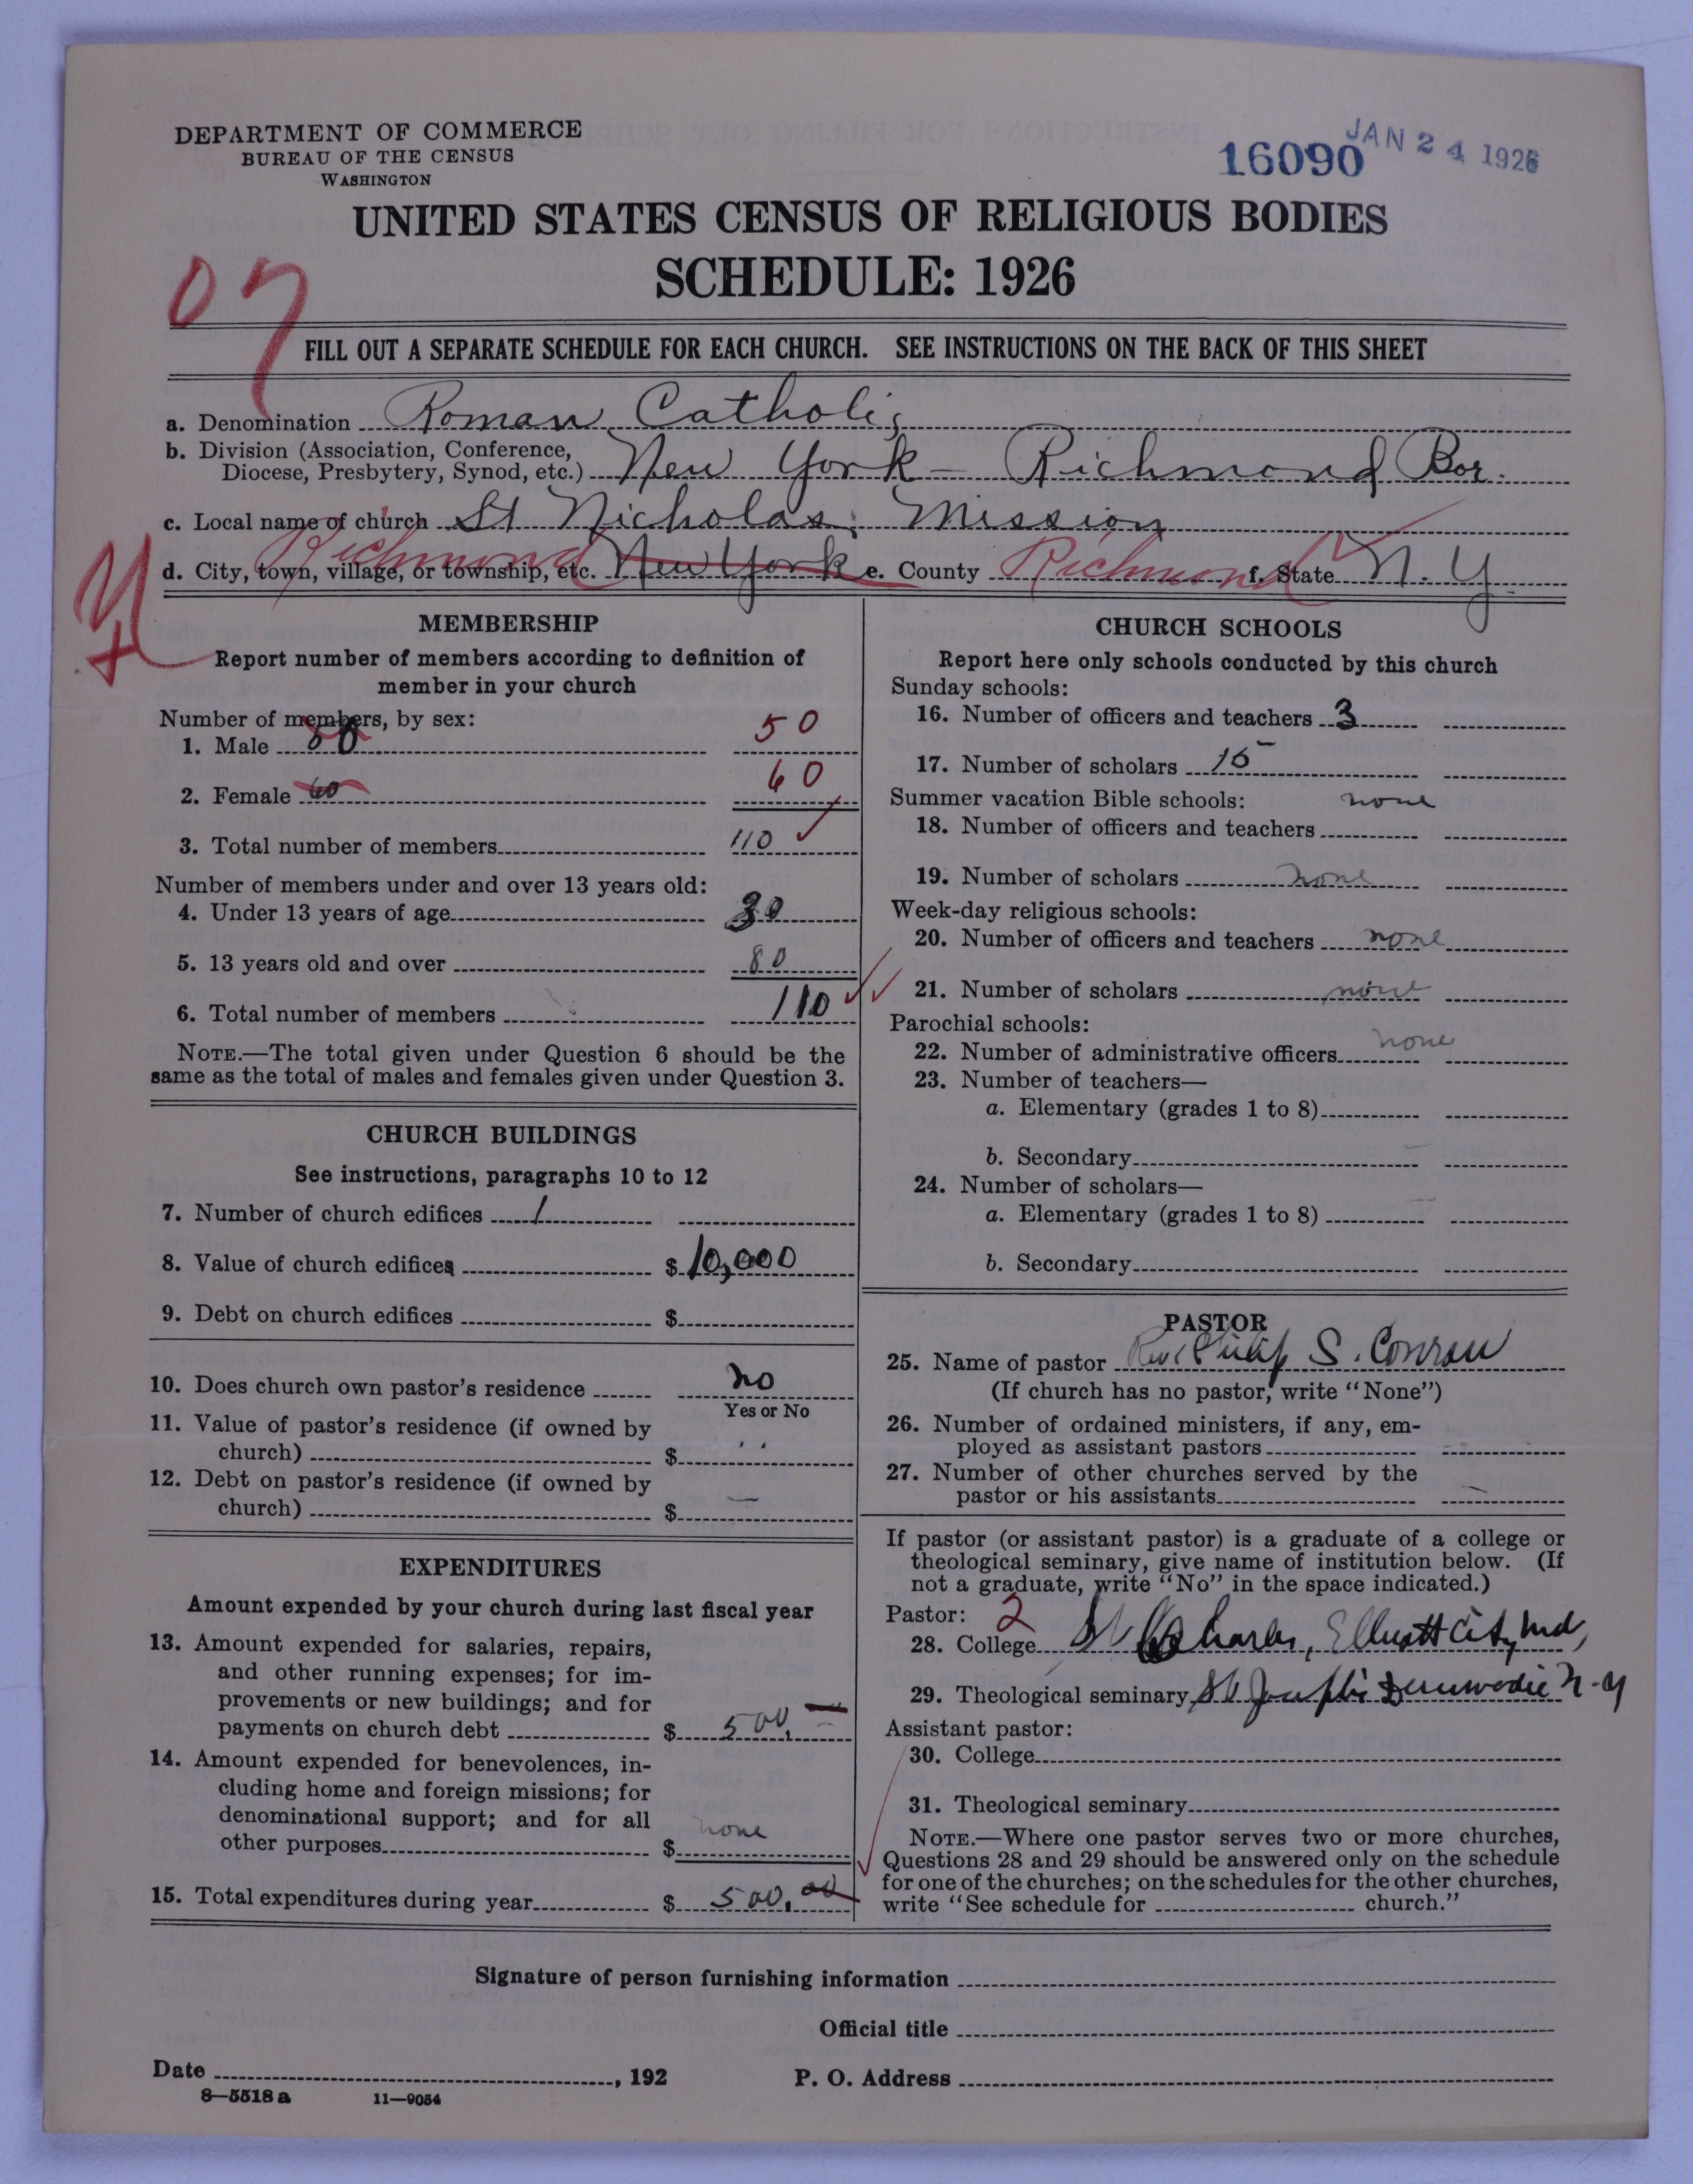 DEPARTMENT OF COMMERCE
BUREAU OF THE CENSUS
WASHINGTON
16090 JAN 24 1926
UNITED STATES CENSUS OF RELIGIOUS BODIES
SCHEDULE: 1926
07
FILL OUT A SEPARATE SCHEDULE FOR EACH CHURCH. SEE INSTRUCTIONS ON THE BACK OF THIS SHEET
a. Denomination Roman Catholic
b. Division (Association, Conference,
Diocese, Presbytery, Synod, etc.) New York – Richmond Bor.
c. Local name of church St Nicholas Mission
d. City, town, village, or township, etc. Richmond New York e. County Richmond f. State N. Y
MEMBERSHIP
Report number of members according to definition of
member in your church
Number of members, by sex:
1. Male 50
2. Female 60 60
3. Total number of members 110
Number of members under and over 13 years old:
4. Under 13 years of age 30
5. 13 years old and over 80
6. Total number of members 110
NOTE.—The total given under Question 6 should be the
same as the total of males and females given under Question 3.
CHURCH BUILDINGS
See instructions, paragraphs 10 to 12
7. Number of church edifices 1
8. Value of church edifices $ 10,000
9. Debt on church edifices $
10. Does church own pastor's residence no
Yes or No
11. Value of pastor's residence (if owned by
church) $
12. Debt on pastor's residence (if owned by
church) $ —
EXPENDITURES
Amount expended by your church during last fiscal year
13. Amount expended for salaries, repairs,
and other running expenses; for im-
provements or new buildings; and for
payments on church debt $ 500. —
14. Amount expended for benevolences, in-
cluding home and foreign missions; for
denominational support; and for all
other purposes $ none
15. Total expenditures during year $ 500.00
CHURCH SCHOOLS
Report here only schools conducted by this church
Sunday schools:
16. Number of officers and teachers 3
17. Number of scholars 15
Summer vacation Bible schools: none
18. Number of officers and teachers
19. Number of scholars none
Week-day religious schools:
20. Number of officers and teachers none
21. Number of scholars none
Parochial schools:
22. Number of administrative officers none
23. Number of teachers—
a. Elementary (grades 1 to 8)
b. Secondary
24. Number of scholars—
a. Elementary (grades 1 to 8)
b. Secondary
PASTOR
25. Name of pastor Rev Philip S. Conran
(If church has no pastor, write "None")
26. Number of ordained ministers, if any, em-
ployed as assistant pastors
27. Number of other churches served by the
pastor or his assistants
If pastor (or assistant pastor) is a graduate of a college or
theological seminary, give name of institution below. (If
not a graduate, write "No" in the space indicated.)
Pastor: 2
28. College St Charles, Ellicott City, Md,
29. Theological seminary St Joseph's Dunwoodie N-Y
Assistant pastor:
30. College
31. Theological seminary
NOTE.—Where one pastor serves two or more churches,
Questions 28 and 29 should be answered only on the schedule
for one of the churches; on the schedules for the other churches,
write "See schedule for church."
Signature of person furnishing information
Official title
Date , 192 P. O. Address
8—5518 a 11—9054